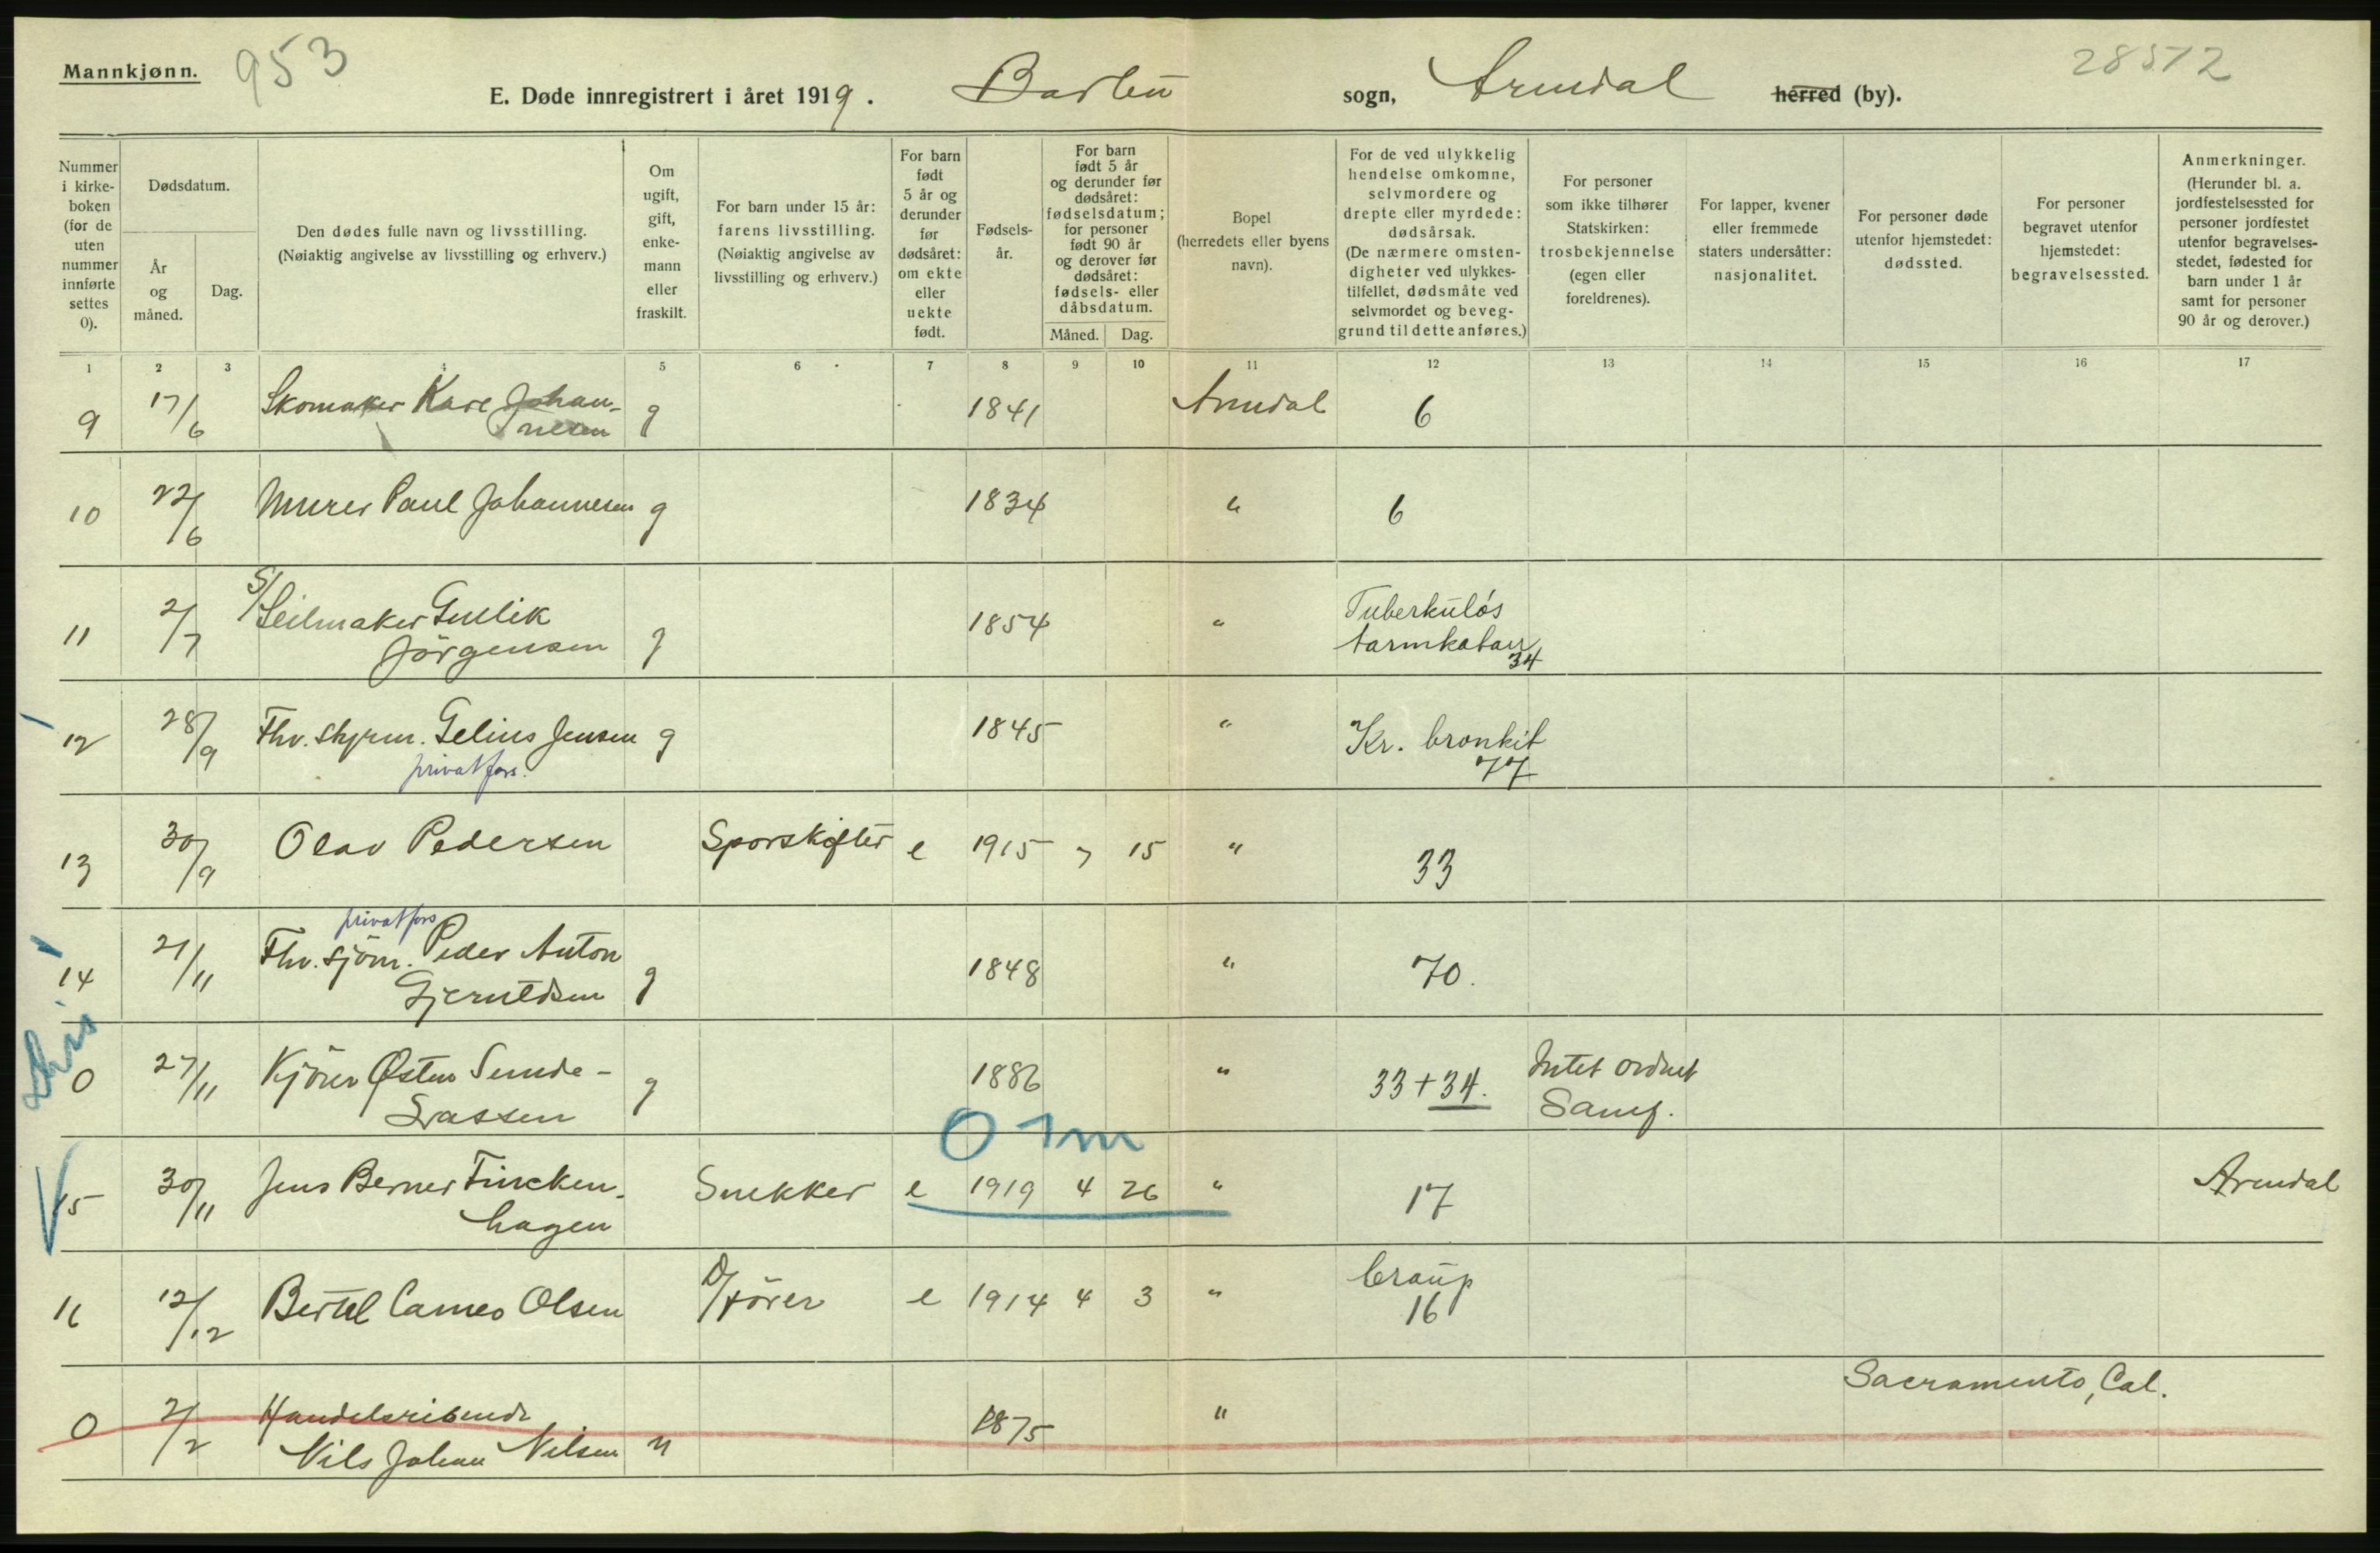 953
28572
Mannkjønn.
E. Døde innregistrert i året 1919. Barbu sogn, Arendal herred (by).
Nummer i kirke- boken (for de uten nummer innførte settes 0).
Dødsdatum.
År og måned.
Dag.
Den dødes fulle navn og livsstilling.
(Nøiaktig angivelse av livsstilling og erhverv.)
Om ugift, gift, enke- mann eller fraskilt.
For barn under 15 år: farens livsstilling. (Nøiaktig angivelse av livsstilling og erhverv.)
For barn født 5 år og derunder før dødsåret: om ekte eller uekte født.
Fødsels- år.
For barn født 5 år og derunder før dødsåret: fødselsdatum; for personer født 90 år og derover før dødsåret: fødsels- eller dåbsdatum.
Måned. Dag.
Bopel (herredets eller byens navn).
For de ved ulykkelig hendelse omkomne, selvmordere og drepte eller myrdede: dødsårsak. (De nærmere omsten- digheter ved ulykkes- tilfellet, dødsmåte ved selvmordet og beveg- grund til dette anføres.)
For personer som ikke tilhører Statskirken: trosbekjennelse (egen eller foreldrenes).
For lapper, kvener eller fremmede staters undersåtter: nasjonalitet.
For personer døde utenfor hjemstedet: dødssted.
For personer begravet utenfor hjemstedet: begravelsessted.
Anmerkninger. (Herunder bl. a. jordfestelsessted for personer jordfestet utenfor begravelses- stedet, fødested for barn under 1 år samt for personer 90 år og derover.)
1 2 3 4 5 6 7 8 9 10 11 12 13 14 15 16 17
9 17/6 Skomaker Kare Johan- g 1841 Arendal 6
nesen
10 22/6 Murer Paul Johannesen g 1834 " 6
11 2/7 S/Seilmaker Gullik g 1854 " Tuberkuløs
Jörgensen tarmkatarr
34
12 28/9 Fhv. styrm. Gelius Jensen g 1845 " Kr. bronkit
privatfors. 77
13 30/9 Olav Pedersen Sporskifter e 1915 7 15 " 33
privatfors
14 21/11 Fhv. sjöm. Peder Anton g 1848 " 70.
Gjeruldsen
0 27/11 Kjörer Østen Sunde- g 1886 " 33+34. Intet ordnet
Lassen Samf.
0 1m
15 30/11 Jens Berner Fincken- Snekker e 1919 4 26 " 17 Arendal
hagen
16 12/12 Bertel Cameo Olsen D/xörer e 1914 4 3 " Croup
16
Sacramento, Cal.
0 2/2 Handelsreisende 1875 "
Nils Johan Nilsen u